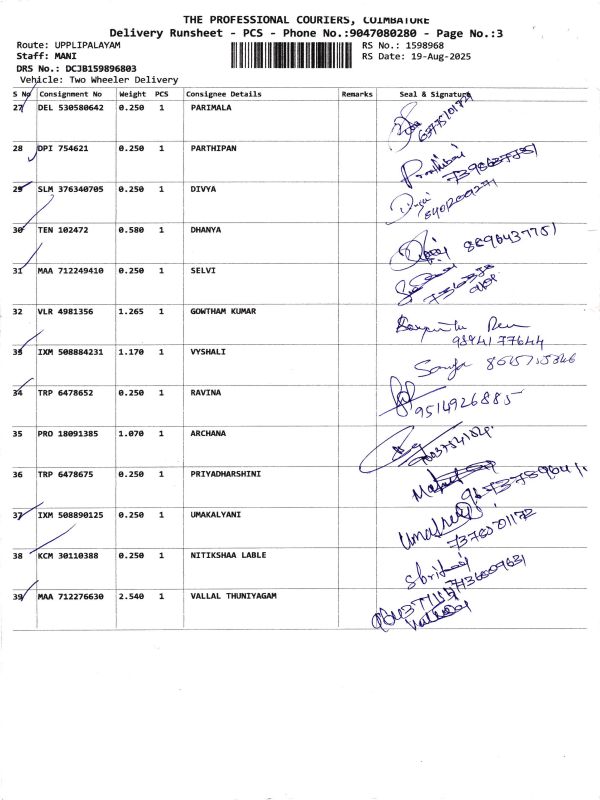 THE PROFESSIONAL COURIERS, COIMBATORE
Delivery Runsheet - PCS - Phone No.:9047080280 - Page No.:3
Route: UPPLIPALAYAM RS No.: 1598968
Staff: MANI RS Date: 19-Aug-2025
DRS No.: DCJB159896803
Vehicle: Two Wheeler Delivery
S No Consignment No Weight PCS Consignee Details Remarks Seal & Signature
27 DEL 530580642 0.250 1 PARIMALA
28 DPI 754621 0.250 1 PARTHIPAN
29 SLM 376340705 0.250 1 DIVYA
30 TEN 102472 0.580 1 DHANYA
31 MAA 712249410 0.250 1 SELVI
32 VLR 4981356 1.265 1 GOWTHAM KUMAR
9894177644
33 IXM 508884231 1.170 1 VYSHALI
34 TRP 6478652 0.250 1 RAVINA 9514926885
35 PRO 18091385 1.070 1 ARCHANA
36 TRP 6478675 0.250 1 PRIYADHARSHINI
37 IXM 508890125 0.250 1 UMAKALYANI
38 KCM 30110388 0.250 1 NITIKSHAA LABLE
39 MAA 712276630 2.540 1 VALLAL THUNIYAGAM